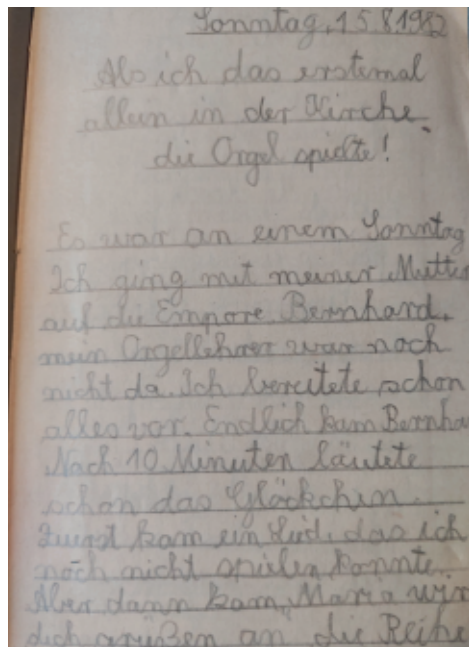 Sonntag, 15.8.1982
Als ich das erstemal
allein in der Kirche
die Orgel spielte!
Es war an einem Sonntag
Ich ging mit meiner Mutter
auf die Empore. Bernhard,
mein Orgellehrer war noch
nicht da. Ich bereitete schon
alles vor. Endlich kam Bernha
Nach 10 Minuten läutete
schon das Glöckchen.
Zuerst kam ein Lied, das ich
noch nicht spielen konnte.
Aber dann kam, Maria wir
dich grüßen an die Reihe